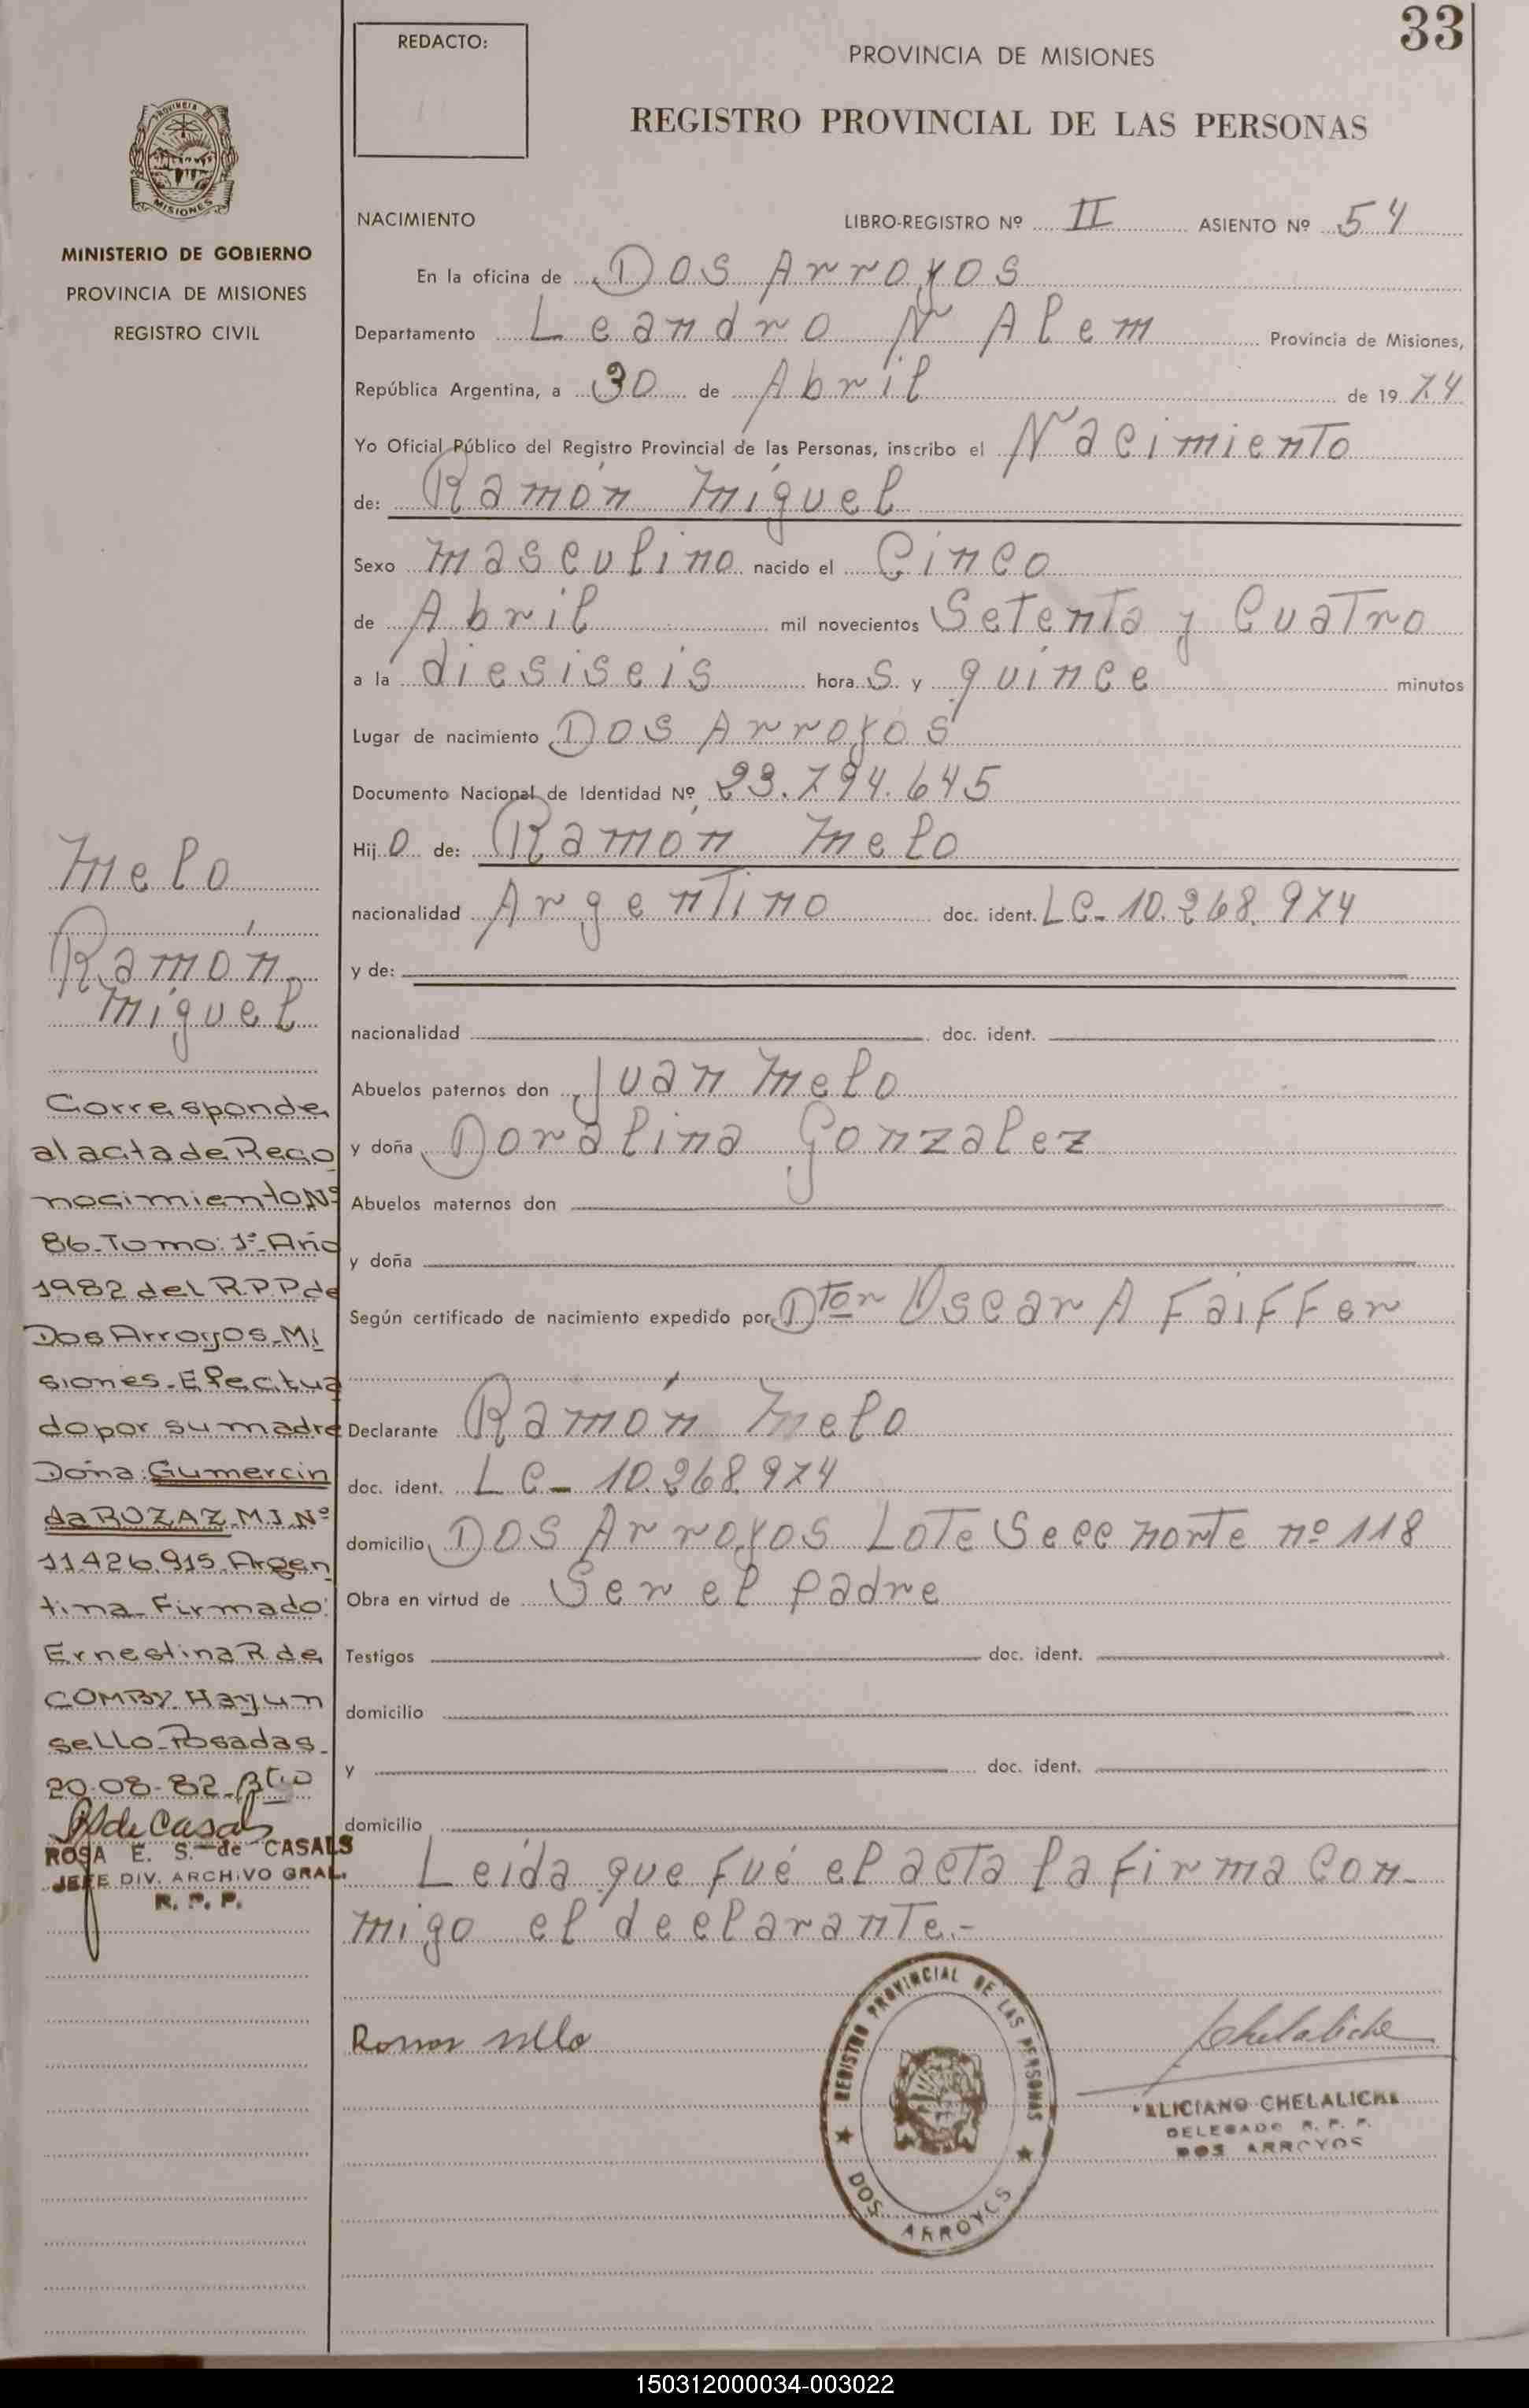 33
REDACTO:
PROVINCIA DE MISIONES
REGISTRO PROVINCIAL DE LAS PERSONAS
PROVINCIA DE
MISIONES
MINISTERIO DE GOBIERNO
PROVINCIA DE MISIONES
REGISTRO CIVIL
NACIMIENTO LIBRO-REGISTRO Nº II ASIENTO Nº 54
En la oficina de Dos Arroyos
Departamento Leandro N Alem Provincia de Misiones,
República Argentina, a 30 de Abril de 1974
Yo Oficial Público del Registro Provincial de las Personas, inscribo el Nacimiento
de: Ramón Miguel
Sexo masculino nacido el Cinco
de Abril mil novecientos Setenta y Cuatro
a la diesiseis hora s y quince minutos
Lugar de nacimiento Dos Arroyos
Documento Nacional de Identidad Nº 23.794.645
Hijo de: Ramón Melo
nacionalidad Argentino doc. ident. LC- 10.268.974
y de:
nacionalidad doc. ident.
Abuelos paternos don Juan Melo
y doña Doralina Gonzalez
Abuelos maternos don
y doña
Según certificado de nacimiento expedido por Dtor Oscar A Faiffer
Declarante Ramón Melo
doc. ident. LC- 10.268.974
domicilio Dos Arroyos Lote Secc norte nº 118
Obra en virtud de Ser el padre
Testigos doc. ident.
domicilio
y doc. ident.
domicilio
Leída que fué el acta la firma con-
migo el declarante.-
Melo
Ramón
Miguel
Corresponde
al acta de Reco
nocimiento Nº
86-Tomo: 1º-Año
1982 del R.P.P de
Dos Arroyos-Mi
siones-Efectua
do por su madre
Doña: Gumercin
da ROZAZ M.I.Nº
11.426.915.Argen
tina-Firmado:
Ernestina R. de
COMBY. Hay un
sello-Posadas-
20-08-82.
ROSA E. S. de CASALS
JEFE DIV. ARCHIVO GRAL.
R. P. P.
REGISTRO PROVINCIAL DE LAS PERSONAS
DOS ARROYOS
Chelaliche
FELICIANO CHELALICHE
DELEGADO R. P. P.
DOS ARROYOS
150312000034-003022